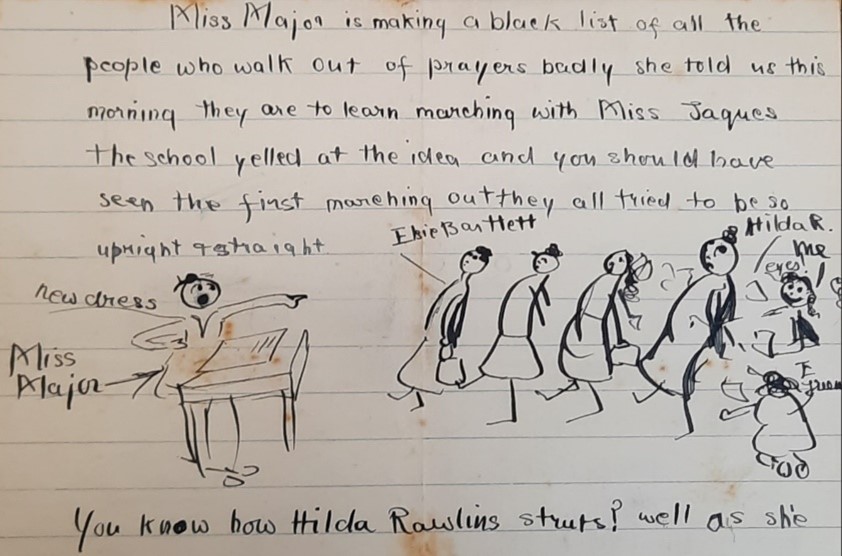 Miss Major is making a black list of all the
people who walk out of prayers badly she told us this
morning they are to learn marching with Miss Jaques
The school yelled at the idea and you should have
seen the first marching out they all tried to be so
upright & straight
Elsie Bartlett
Hilda R.
me
eyes!
new dress
Miss
Major
E
You know how Hilda Rawlins struts? well as she